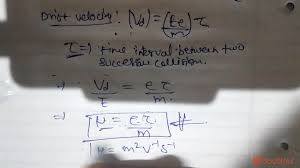 Drift velocity: (Vd) = (Ee/m) τ
τ => time interval between two
successive collision.
=> Vd/E = eτ/m
=> μ = eτ/m
μ = m²V⁻¹s⁻¹